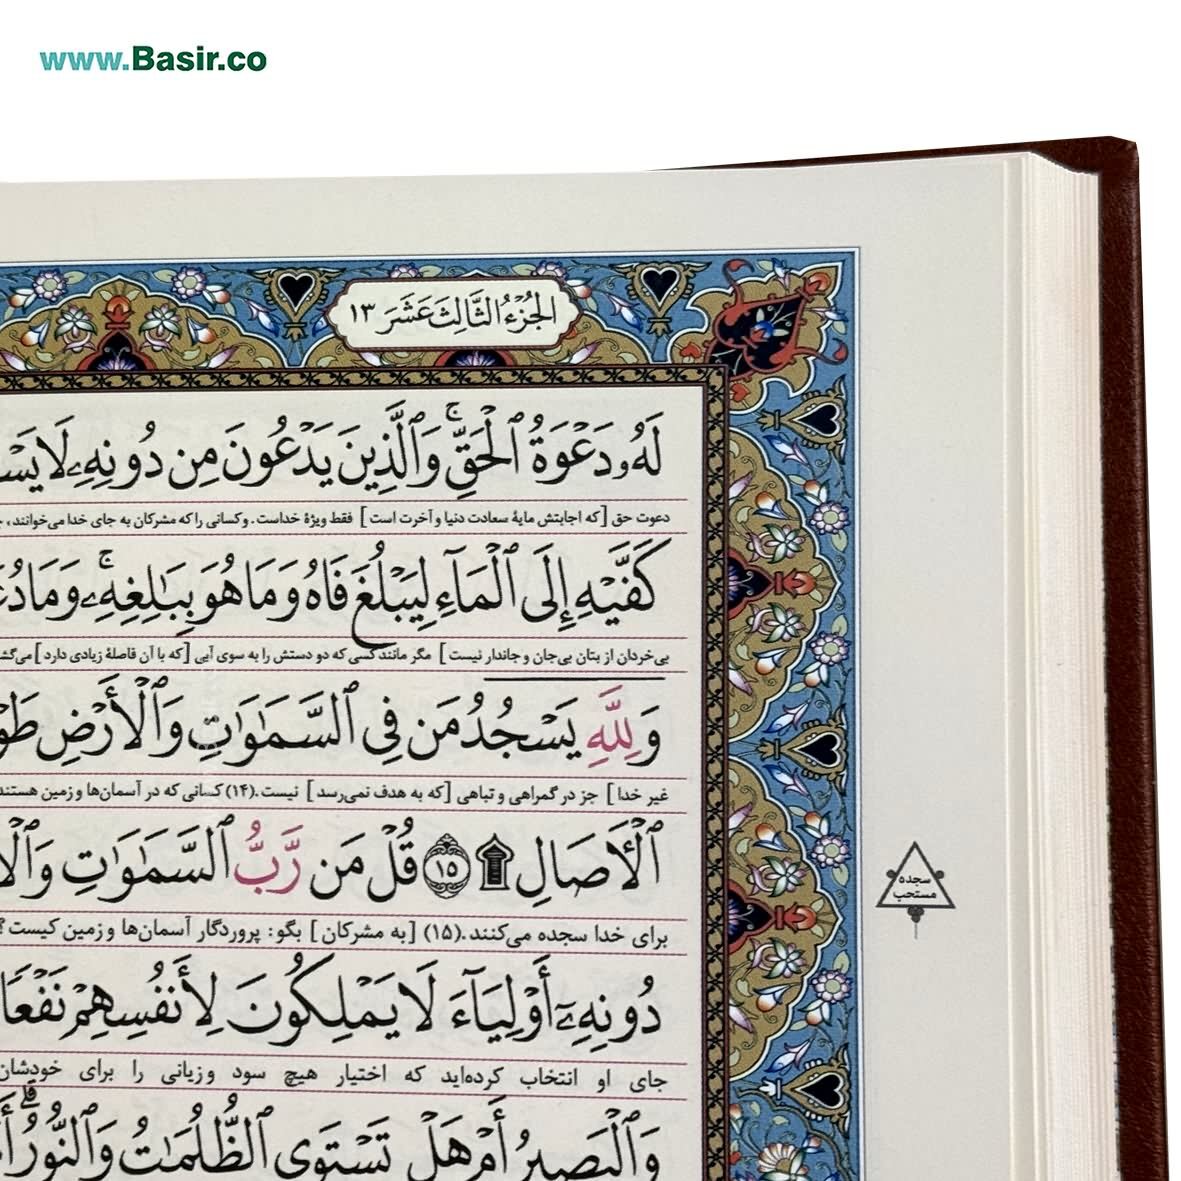 www.Basir.co
الجُزءُ الثَّالِثَ عَشَرَ ١٣
لَهُۥ دَعْوَةُ ٱلْحَقِّ ۚ وَٱلَّذِينَ يَدْعُونَ مِن دُونِهِۦ لَا
دعوت حق [ که اجابتش مایهٔ سعادت دنیا و آخرت است ] فقط ویژهٔ خداست. و کسانی را که مشرکان به جای خدا می‌خوانند،
كَفَّيْهِ إِلَى ٱلْمَآءِ لِيَبْلُغَ فَاهُ وَمَا هُوَ بِبَـٰلِغِهِۦ ۚ وَمَا
بی‌خردان از بتان بی‌جان و جاندار نیست ] مگر مانند کسی که دو دستش را به سوی آبی [ که با آن فاصلهٔ زیادی دارد ]
وَلِلَّهِ يَسْجُدُ مَن فِى ٱلسَّمَـٰوَٰتِ وَٱلْأَرْضِ
غیر خدا ] جز در گمراهی و تباهی [ که به هدف نمی‌رسد ] نیست. (۱۴) کسانی که در آسمان‌ها و زمین هستند
ٱلْـَٔاصَالِ ۩ ١٥ قُلْ مَن رَّبُّ ٱلسَّمَـٰوَٰتِ
سجده
مستحب
برای خدا سجده می‌کنند. (۱۵) [ به مشرکان ] بگو: پروردگار آسمان‌ها و زمین کیست؟
دُونِهِۦٓ أَوْلِيَآءَ لَا يَمْلِكُونَ لِأَنفُسِهِمْ نَفْعًا
جای او انتخاب کرده‌اید که اختیار هیچ سود و زیانی را برای خودشان
وَٱلْبَصِيرُ أَمْ هَلْ تَسْتَوِى ٱلظُّلُمَـٰتُ وَٱلنُّورُ ۗ